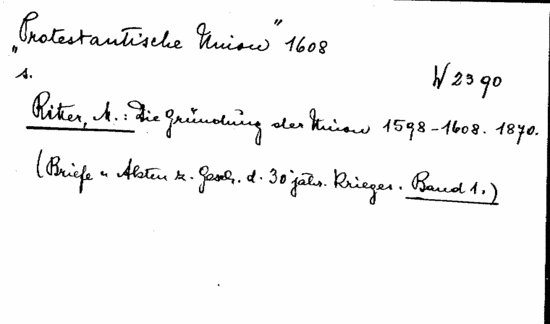 „Protestantische Union" 1608
s.
W 2390
Ritter, M.: Die Gründung der Union 1598-1608. 1870.
(Briefe u Akten z. Gesch. d. 30 jähr. Krieges. Band 1.)